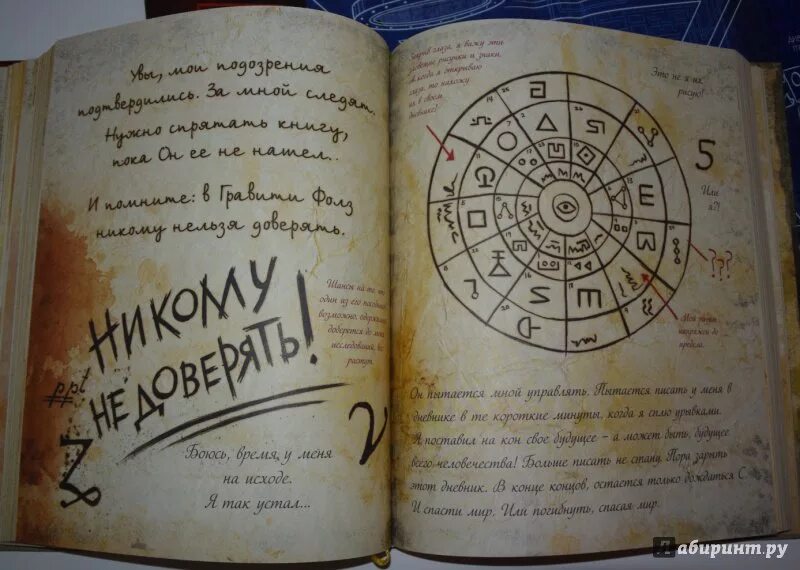 Увы, мои подозрения
подтвердились. За мной следят.
Нужно спрятать книгу,
пока Он ее не нашел..
И помните: в Гравити Фолз
никому нельзя доверять.
НИКОМУ
НЕ ДОВЕРЯТЬ!
Шансы на то, что
один из его
возможно,
доверется до моих
исследований,
растут.
Боюсь, время у меня
на исходе.
Я так устал...
Закрыв глаза, я вижу эти
рисунки и знаки.
А когда я открываю
глаза, то нахожу
их в своем
дневнике!
Это не я их
рисую!
5
Или
я?!
???
Мой разум
напряжен до
предела.
Он пытается мной управлять. Пытается писать у меня в
дневнике в те короткие минуты, когда я сплю урывками.
Я поставил на кон свое будущее – а может быть, будущее
всего человечества! Больше писать не стану. Пора зарыть
этот дневник. (В конце концов, остается только дождаться С.
И спасти мир. Или погибнуть, спасая мир.
Лабиринт.ру